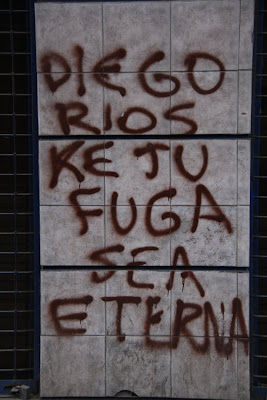 DIEGO
RIOS
KE TU
FUGA
SEA
ETERNA